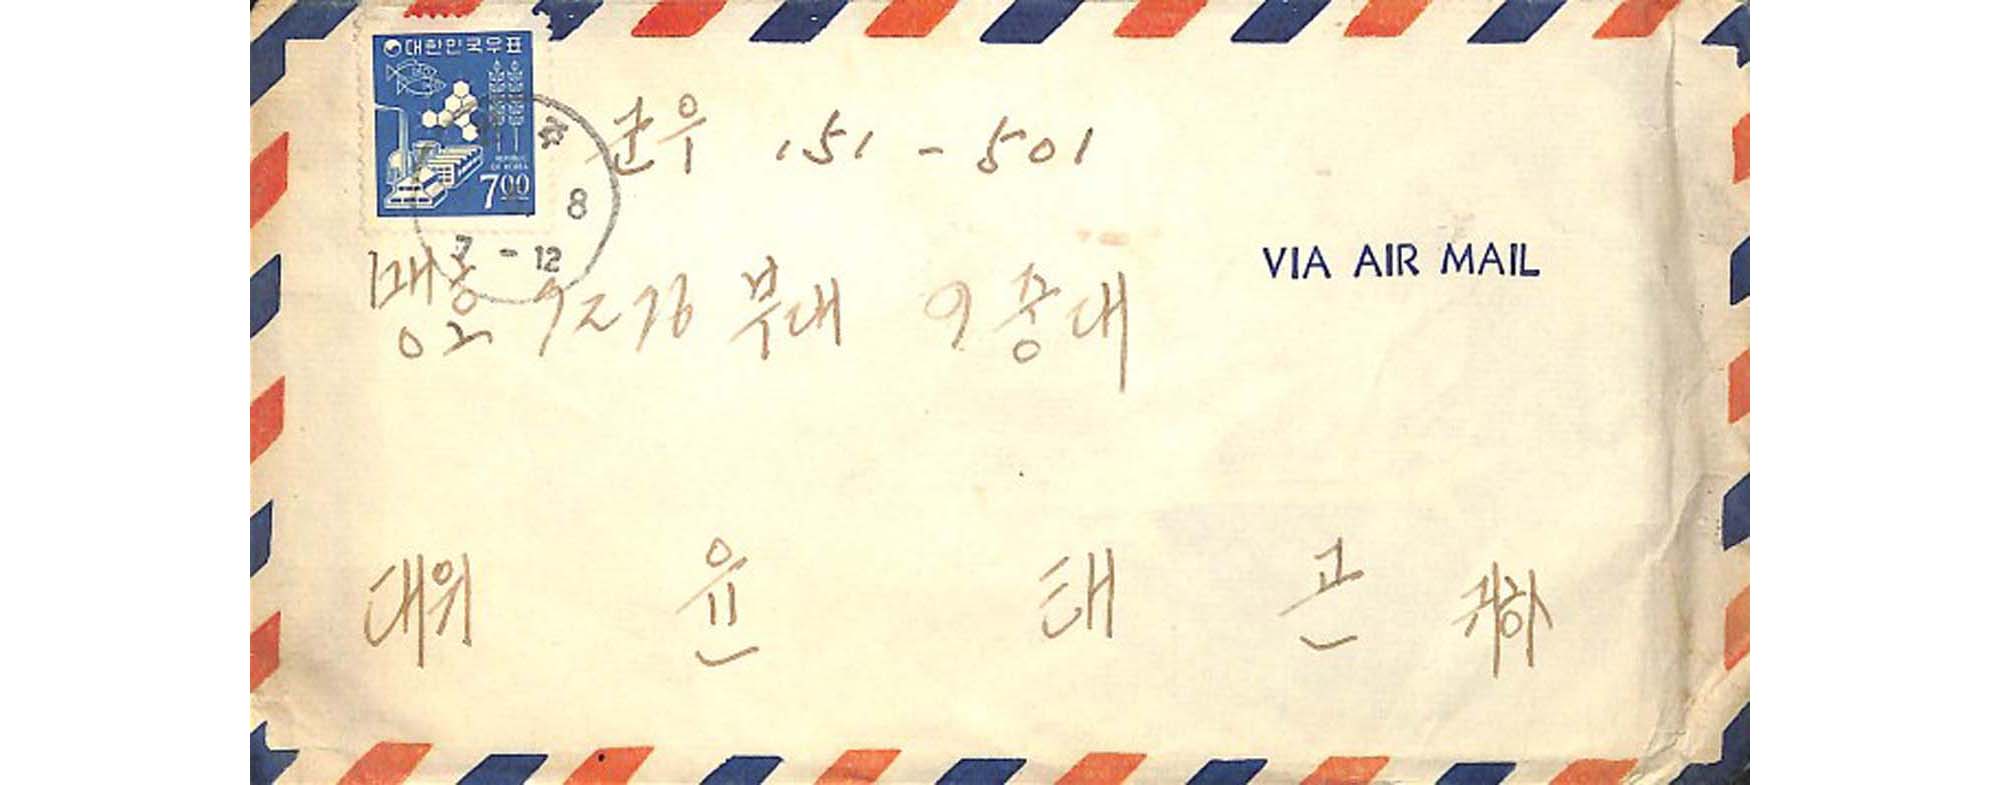 대한민국우표
REPUBLIC
OF KOREA
7 00
주
8
7 - 12
군우 151 - 501
맹호 9276 부대 9 중대
VIA AIR MAIL
대위 윤 태 근 귀하